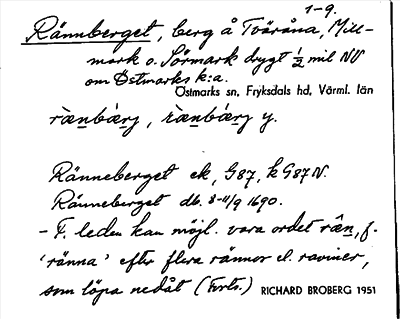 1-9.
Rännberget, berg å Tväråna, Mill-
mark o. Sörmark drygt ½ mil NV
om Östmarks k:a.
Östmarks sn, Fryksdals hd, Värml. län
Ränneberget ek, G87, k G87 N.
Ränneberget db. 8-11/9 1690.
- F. leden kan möjl. vara ordet rän, f.
'ränna' efter flera rännor el. raviner,
som löpa nedåt (Forts.) RICHARD BROBERG 1951